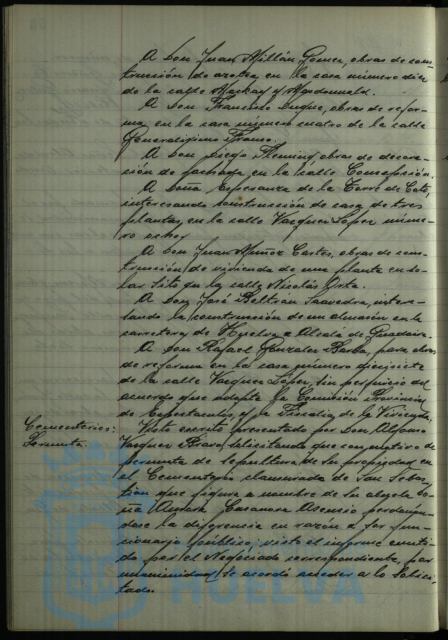 A Don Juan Millán Gomez, obras de cons-
trucción de azotea, en la casa número diez
de la calle Mackay y Macdonald.
A Don Francisco Duque, obras de refor-
ma, en la casa número cuatro de la calle
Generalísimo Franco.
A Don Diego Fleming, obras de decora-
ción de fachada, en la calle Concepción.
A Doña Esperanza de la Torre de Coto,
interesando construcción de casa de tres
plantas, en la calle Vazquez Lopez núme-
ro ocho.
A Don Juan Muñoz Cortes, obras de cons-
trucción de vivienda de una planta en so-
lar sito en la calle Nicolás Orta.
A Don José Beltrán Saavedra, intere-
sando la construcción de un almacén en la
carretera de Huelva a Alcalá de Guadaira.
A Don Rafael Gonzalez Barba, para obras
de reforma en la casa número diecisiete
de la calle Vazquez Lopez, sin perjuicio del
acuerdo que adopte la Comisión Provincial
de Espectaculos, y la Fiscalía de la Vivienda.
Cementerios:
Permuta.
Visto escrito presentado por Don Alfonso
Vazquez Bravo, solicitando que con motivo de
permuta de sepultura de su propiedad en
el Cementerio clausurado de San Sebas-
tian que figura a nombre de su abuela Do-
ña Casanova Asencio perdonan-
dose la diferencia en razón a ser fun-
cionario público; visto el informe emiti-
do por el Negociado correspondiente, por
unanimidad, se acordó acceder a lo solici-
tado.
HUELVA